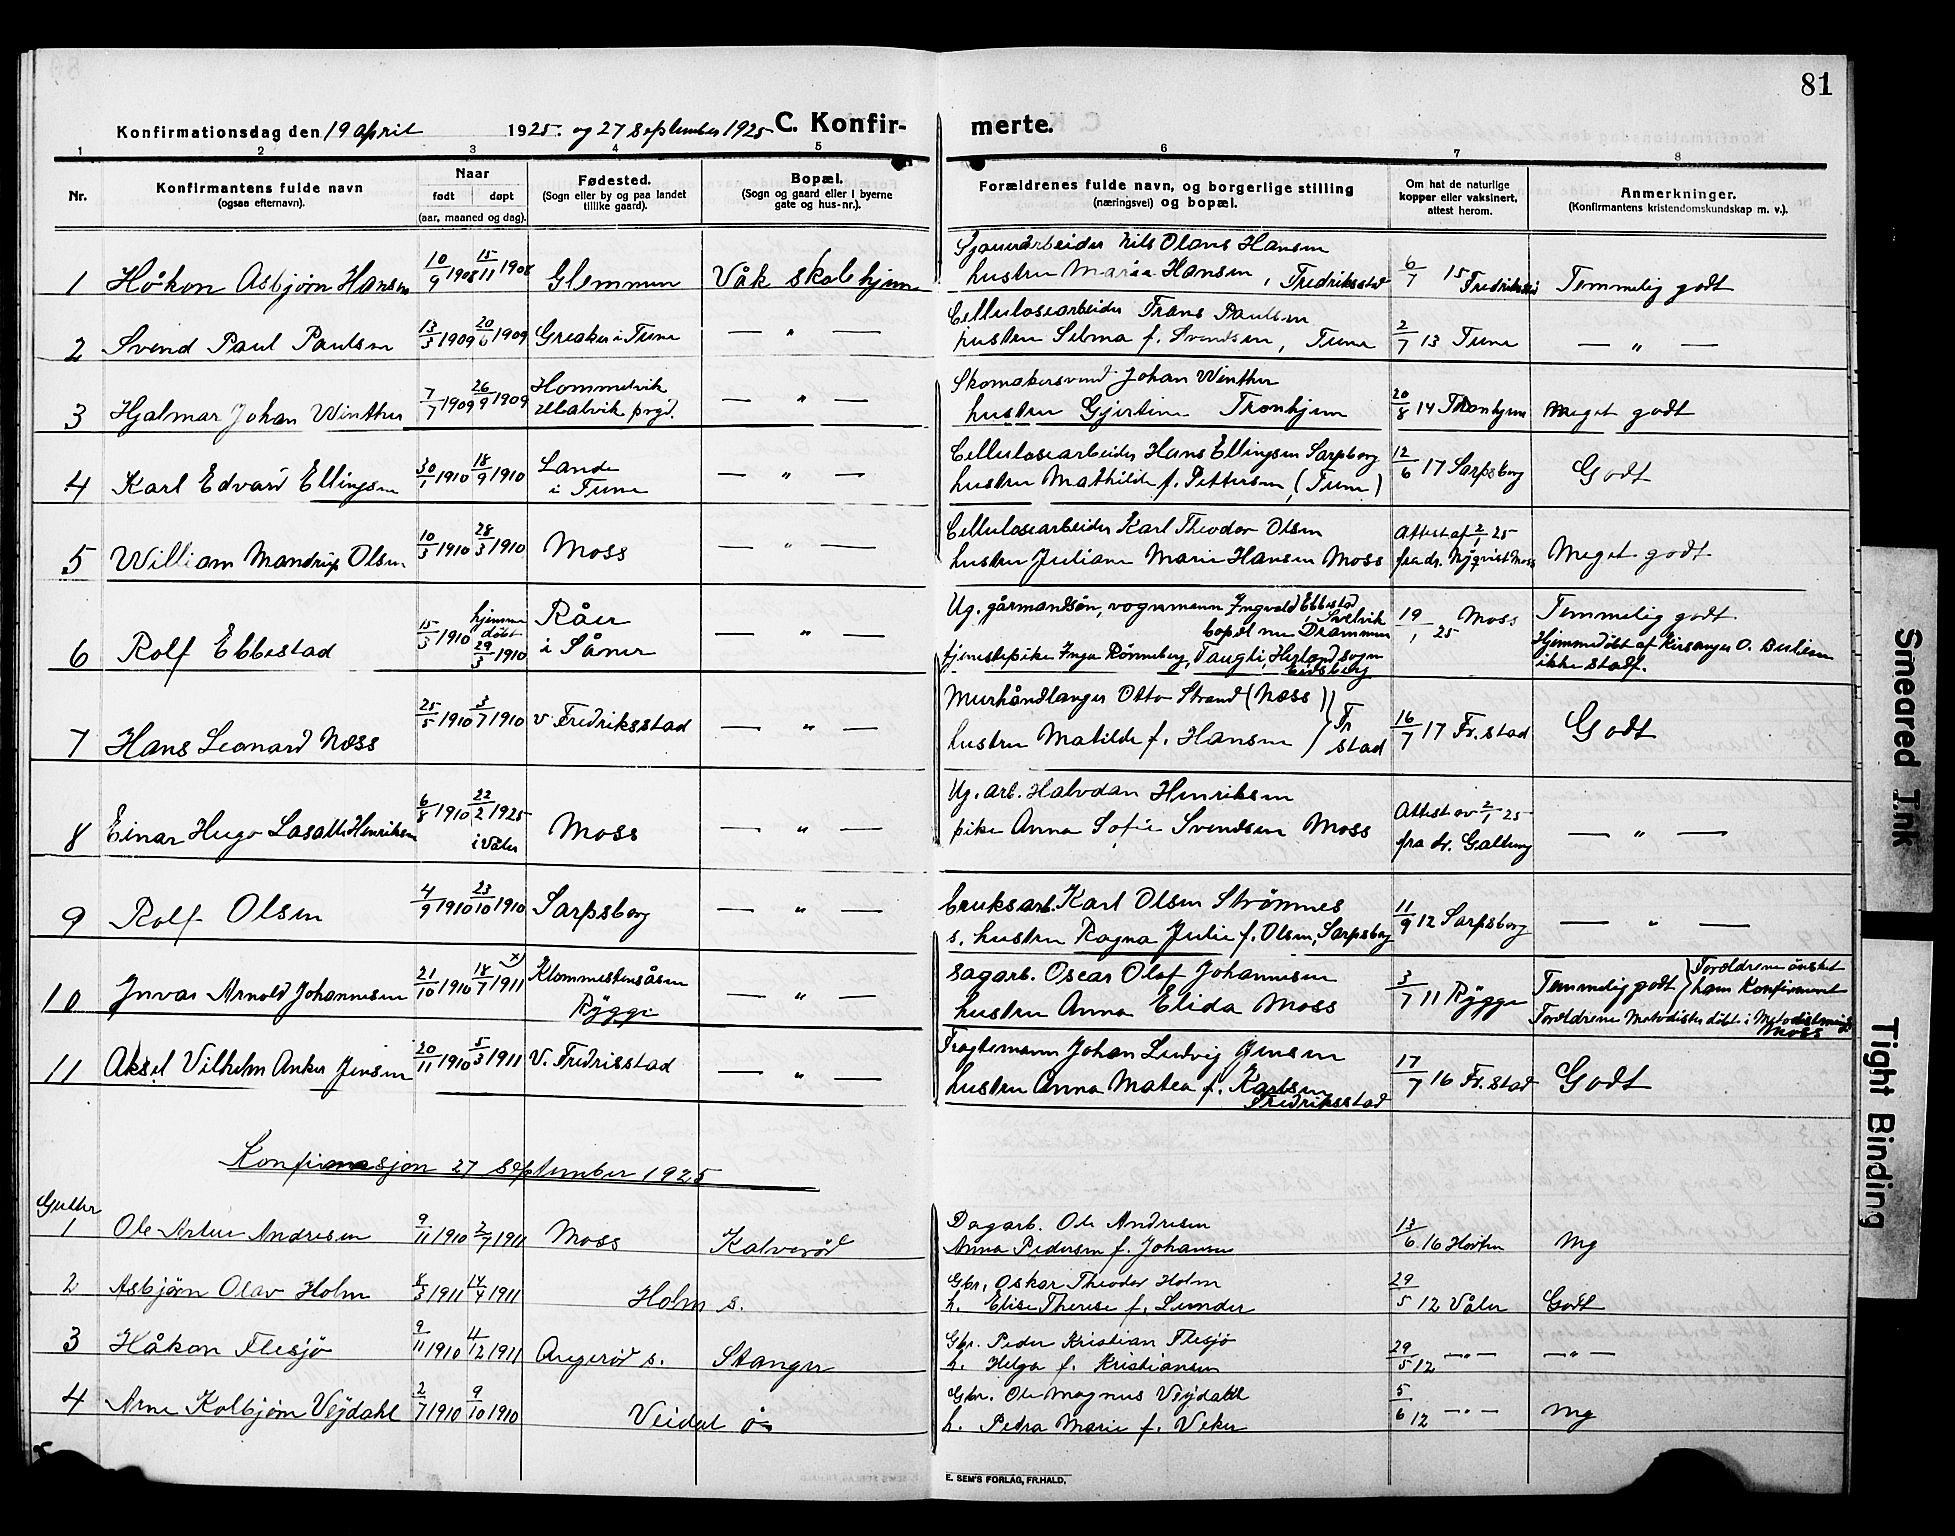 81
Konfirmationsdag den 19 april 1925. og 27 September 1925 C. Konfir- merte.
1 2 3 4 5 6 7 8
Nr. Konfirmantens fulde navn (ogsaa efternavn). Naar født døpt (aar, maaned og dag). Fødested. (Sogn eller by og paa landet tillike gaard). Bopæl. (Sogn og gaard eller i byerne gate og hus-nr.). Forældrenes fulde navn, og borgerlige stilling (næringsvei) og bopæl. Om hat de naturlige kopper eller vaksinert, attest herom. Anmerkninger. (Konfirmantens kristendomskundskap m. v.).
1 Håkon Asbjørn Hansen 10/9 1908 15/11 1908 Glemmen Våk skolehjem Sjauerarbeider Nils Olans Hansen
hustru Maria Hansen, Fredriksstad 6/7 15 Fredriksstad Temmelig godt
2 Svend Paul Paulsen 13/5 1909 20/6 1909 Greaker i Tune — " — Cellulosearbeider Frans Paulsen
hustru Selma f. Svendsen, Tune 2/7 13 Tune — " —
3 Hjalmar Johan Winther 7/7 1909 26/9 1909 Hommelvik Malvik prgd. — " — Skomakersvend Johan Winther
hustru Gjertine Tronhjem 20/8 14 Tronhjem Meget godt
4 Karl Edvard Ellingsen 30/1 1910 18/9 1910 Lande i Tune — " — Cellulosearbeider Hans Ellingsen Sarpsborg
hustru Mathilde f. Pettersen, (Tune) 12/6 17 Sarpsborg Godt
5 William Mandrup Olsen 10/3 1910 28/3 1910 Moss — " — Cellulosearbeider Karl Theodor Olsen
hustru Juliane Marie Hansen Moss Attest af 2/1 25 fra dr. Nyqvist Moss Meget godt
6 Rolf Ebbestad 15/3 1910 hjemme døbt 29/3 1910 Råer i Såner — " — Ug. gårmandsøn, vognmann Ingvald Ebbestad, Svelvik
bopæl nu Drammen
tjenestepike Inga Rønneberg, Taugli, Herland sogn Eidsberg 19/1 25 Moss Temmelig godt
Hjemmedøbt af Kirsanger O. Berlien
ikke stadf.
7 Hans Leonard Næss 25/5 1910 3/7 1910 v Fredriksstad — " — Murhåndlanger Otto Strand (Næss)
hustru Matilde f. Hansen Fr stad 16/7 17 Fr. stad Godt
8 Einar Hugo Lasalle Henriksen 6/8 1910 22/2 1925 i Våler Moss — " — Ug. arb. Halvdan Henriksen
pike Anna Sofie Svendsen Moss Attest av 2/1 25 fra dr. Galtung — " —
9 Rolf Olsen 4/9 1910 23/10 1910 Sarpsborg — " — bruksarb. Karl Olsen Strømnes
s. hustru Ragna Julie f. Olsen, Sarpsborg 11/9 12 Sarpsborg — " —
10 Invar Arnold Johannesen 21/10 1910 18/7 1911 x) Klommestensåsen Rygge — " — Sagarb. Oscar Olaf Johannesen
hustru Anna Elida Moss 3/7 11 Rygge Temmelig godt Forældrene ønsket ham Konfirmert
Forældrene Metodister døbt i Metodistmenigh Moss
11 Aksel Vilhelm Anker Jensen 20/11 1910 5/3 1911 V. Fredrisstad — " — Fragtemann Johan Ludvig Jensen
hustru Anna Matea f. Karlsen Fredriksstad 17/7 16 Fr. stad Godt
Konfirmasjon 27 september 1925
Gutter
1 Ole Artur Andresen 9/11 1910 2/7 1911 Moss Kalverød Dagarb. Ole Andresen
Anna Pedersen f. Johansen 13/6 16 Horten Mg
2 Asbjørn Olav Holm 8/3 1911 14/4 1911 Holm s. Gbr. Oskar Theodor Holm
h. Elise Therese f. Lunder 29/5 12 Våler Godt
3 Håkon Flesjø 9/11 1910 4/12 1911 Augerød s. Stanger Gbr. Peder Kristian Flesjø
h. Helga f. Kristiansen 29/5 12 — " — — " —
4 Arne Kolbjørn Vejdahl 2/7 1910 9/10 1910 Veidal ø Gbr. Ole Magnus Vejdahl
h. Petra Marie f. Veker 5/6 12 — " — Mg
5
E. SEM'S FORLAG, FR.HALD.
Smeared Ink
Tight Binding